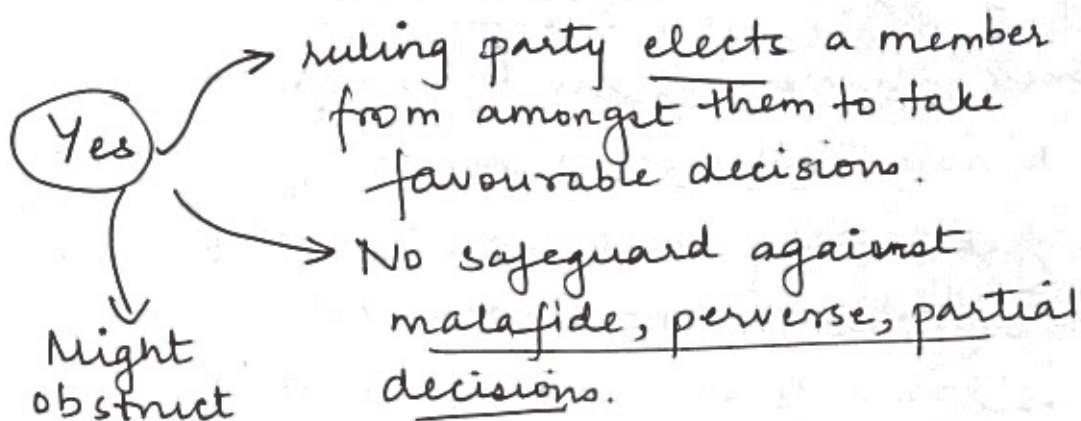 ruling party elects a member
from amongst them to take
favourable decisions.
Yes
No safeguard against
malafide, perverse, partial
decisions.
Might
obstruct